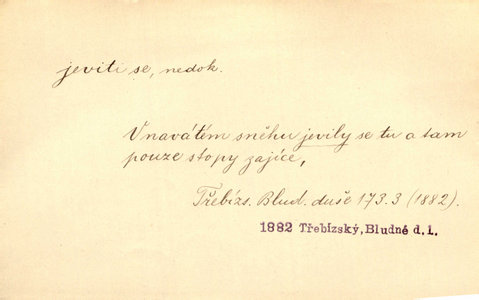 jeviti se, nedok.
V navátém sněhu jevily se tu a tam
pouze stopy zajíce,
Třebízs. Blud. duše 173.3 (1882).
1882 Třebízský, Bludné d. I.